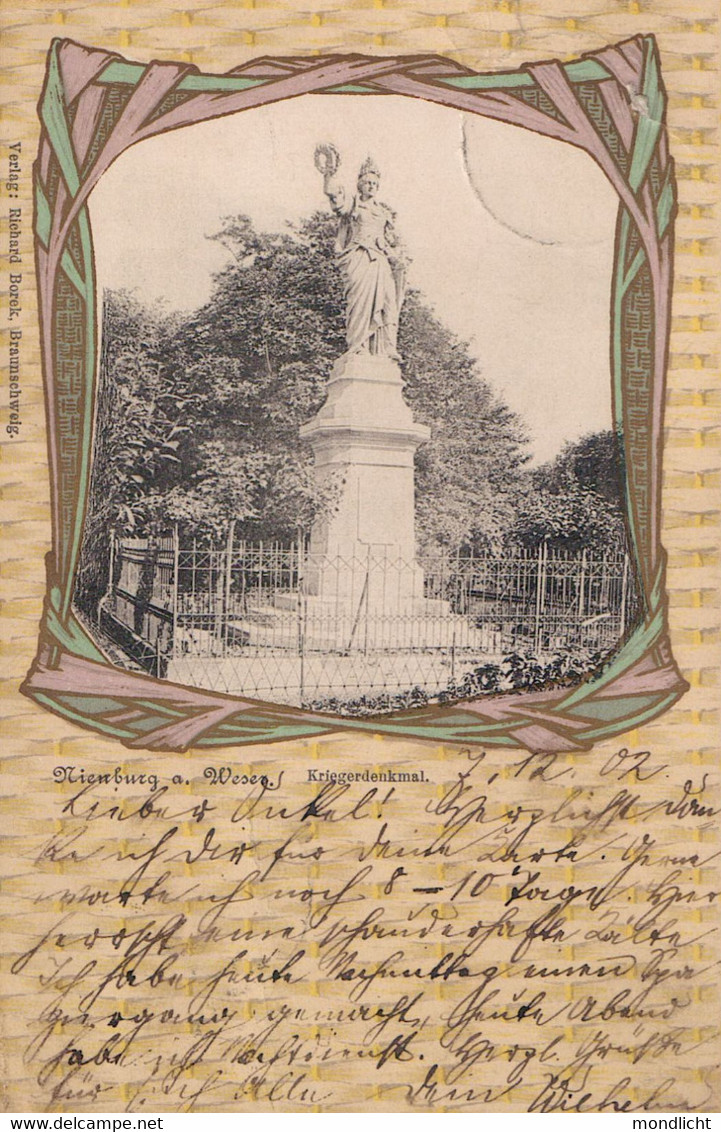 Verlag: Richard Borek, Braunschweig.
Nienburg a. Weser. Kriegerdenkmal. 7.12.02.
Lieber Onkel! Herzlichst dan
ke ich dir für deine Karte. Gerne
warte ich noch 8-10 Tage. Hier
herrscht eine schauderhafte Kälte
Ich habe heute Nachmittag einen Spa
ziergang gemacht, heute Abend
habe ich Nachtdienst. Herzl. Grüße
für Euch Alle dein Wilhelm
mondlicht